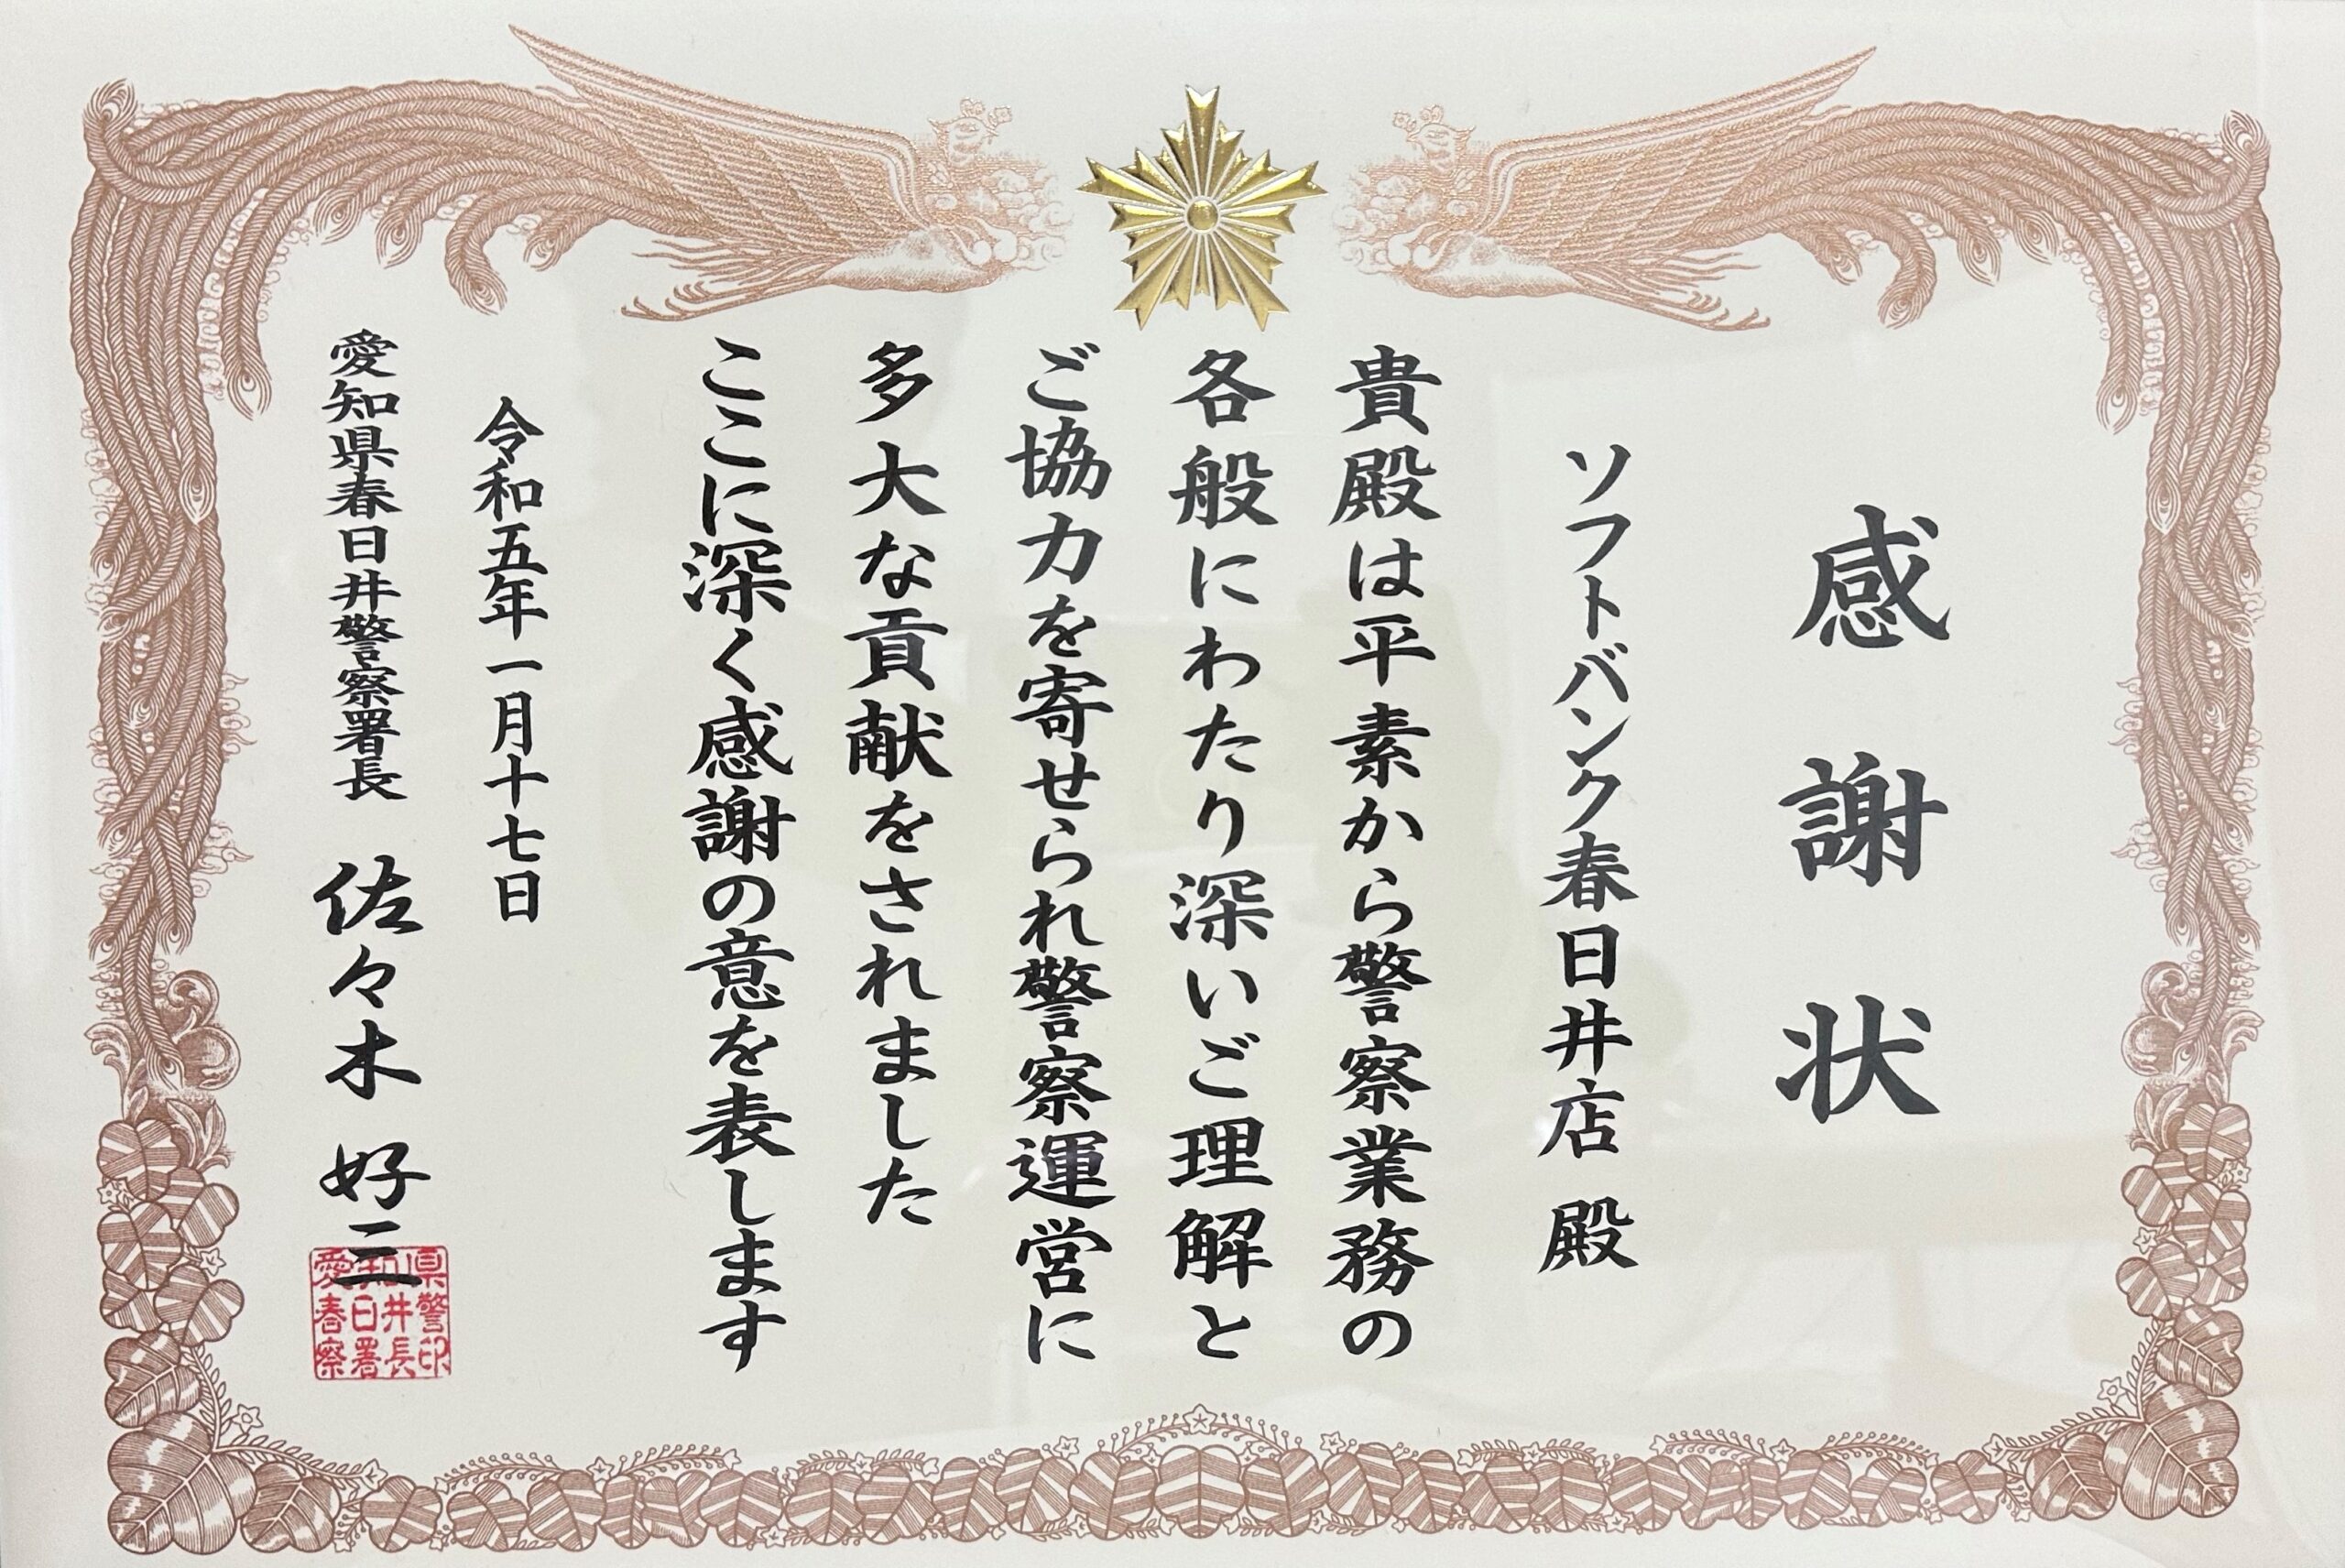 感謝状
ソフトバンク春日井店 殿
貴殿は平素から警察業務の
各般にわたり深いご理解と
ご協力を寄せられ警察運営に
多大な貢献をされました
ここに深く感謝の意を表します
令和五年一月十七日
愛知県春日井警察署長 佐々木 好三
愛知県
春日井警
察署長印